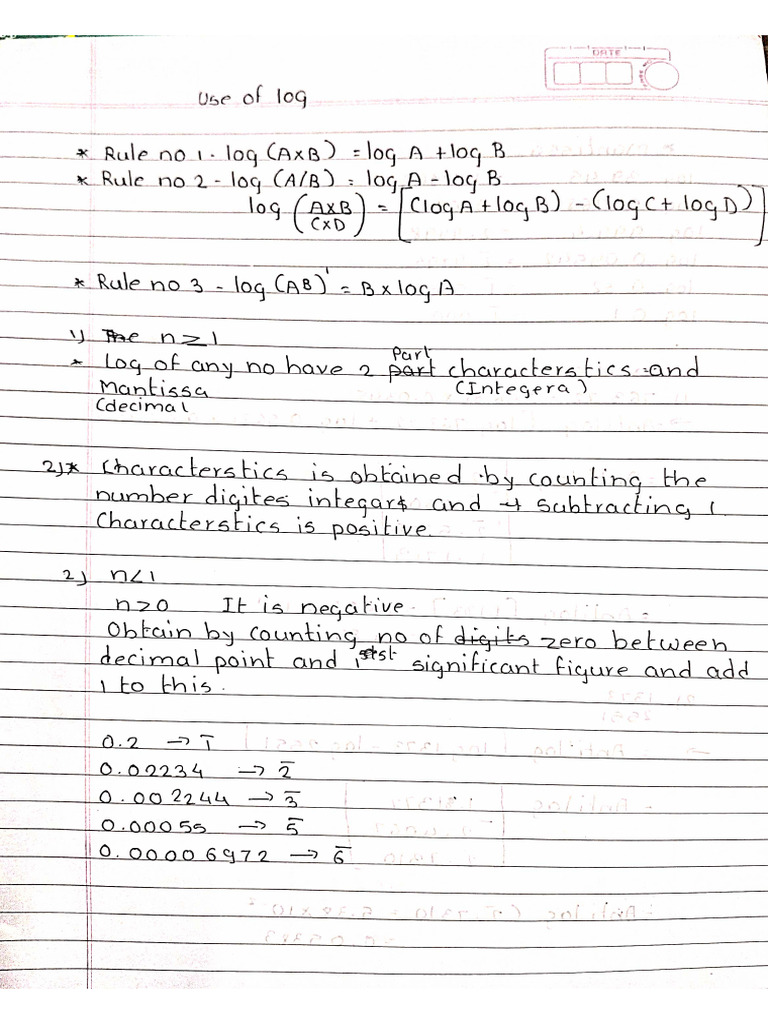 DATE
Use of log
* Rule no 1 - log (A×B) = log A + log B
* Rule no 2 - log (A/B) = log A - log B
log (A×B / C×D) = [(log A + log B) - (log C + log D)]
* Rule no 3 - log (AB)' = B × log A
1) The n ≥ 1
* Log of any no have 2 part Part characterstics and
Mantissa (Integera)
(decimal
2)* Characterstics is obtained by counting the
number digites integars and → subtracting 1.
Characterstics is positive.
2) n<1
n>0 It is negative.
Obtain by counting no of digits zero between
decimal point and 1st significant figure and add
1 to this.
0.2 → 1̅
0.02234 → 2̅
0.002244 → 3̅
0.00055 → 5̅
0.00006972 → 6̅